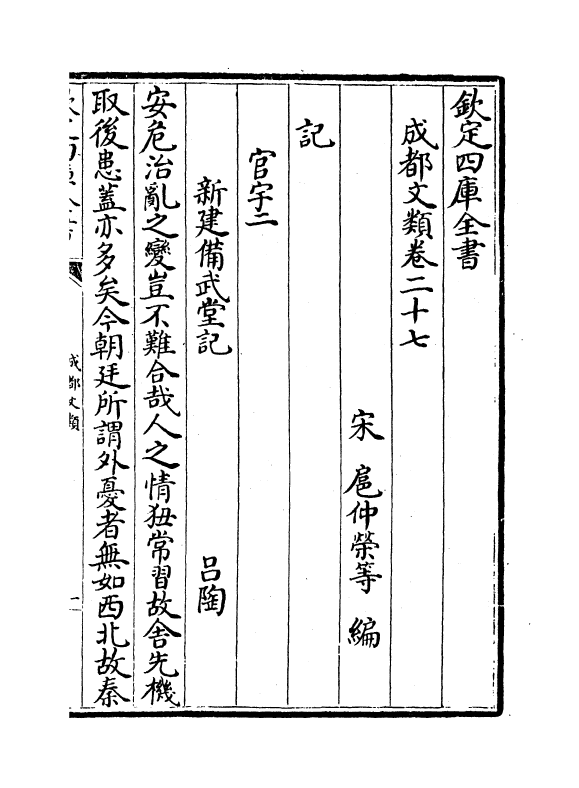 欽定四庫全書
成都文類卷二十七
宋 扈仲榮等 編
記
官宇二
新建備武堂記 吕陶
安危治亂之變豈不難合哉人之情狃常習故舎先機
取後患蓋亦多矣今朝廷所謂外憂者無如西北故秦
成都文類